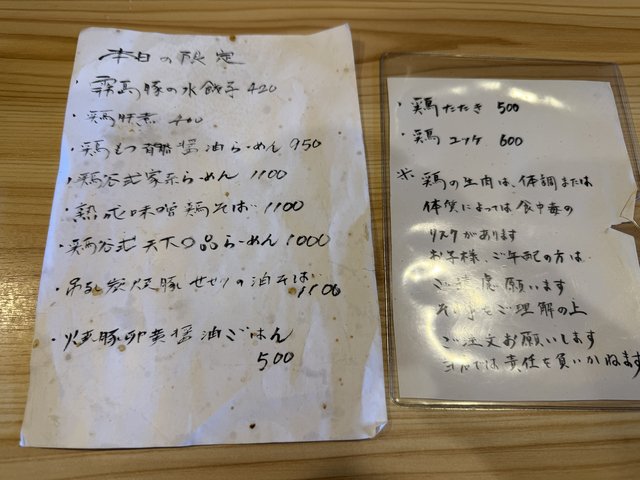 本日の限定
・霧島豚の水餃子 420
・鶏肝煮 400
・鶏もつ 醤油らーめん 950
・鶏谷式家系らーめん 1100
・熟成味噌鶏そば 1100
・鶏谷式天下の品らーめん 1000
・吊るし炭焼豚せせりの油そば
1100
・焼豚卵黄醤油ごはん
500
・鶏たたき 500
・鶏ユッケ 600
※鶏の生肉は、体調または
体質によっては食中毒の
リスクがあります
お子様、ご年配の方は
ご遠慮願います
ご理解の上
ご注文お願いします
当店では責任を負いかねます